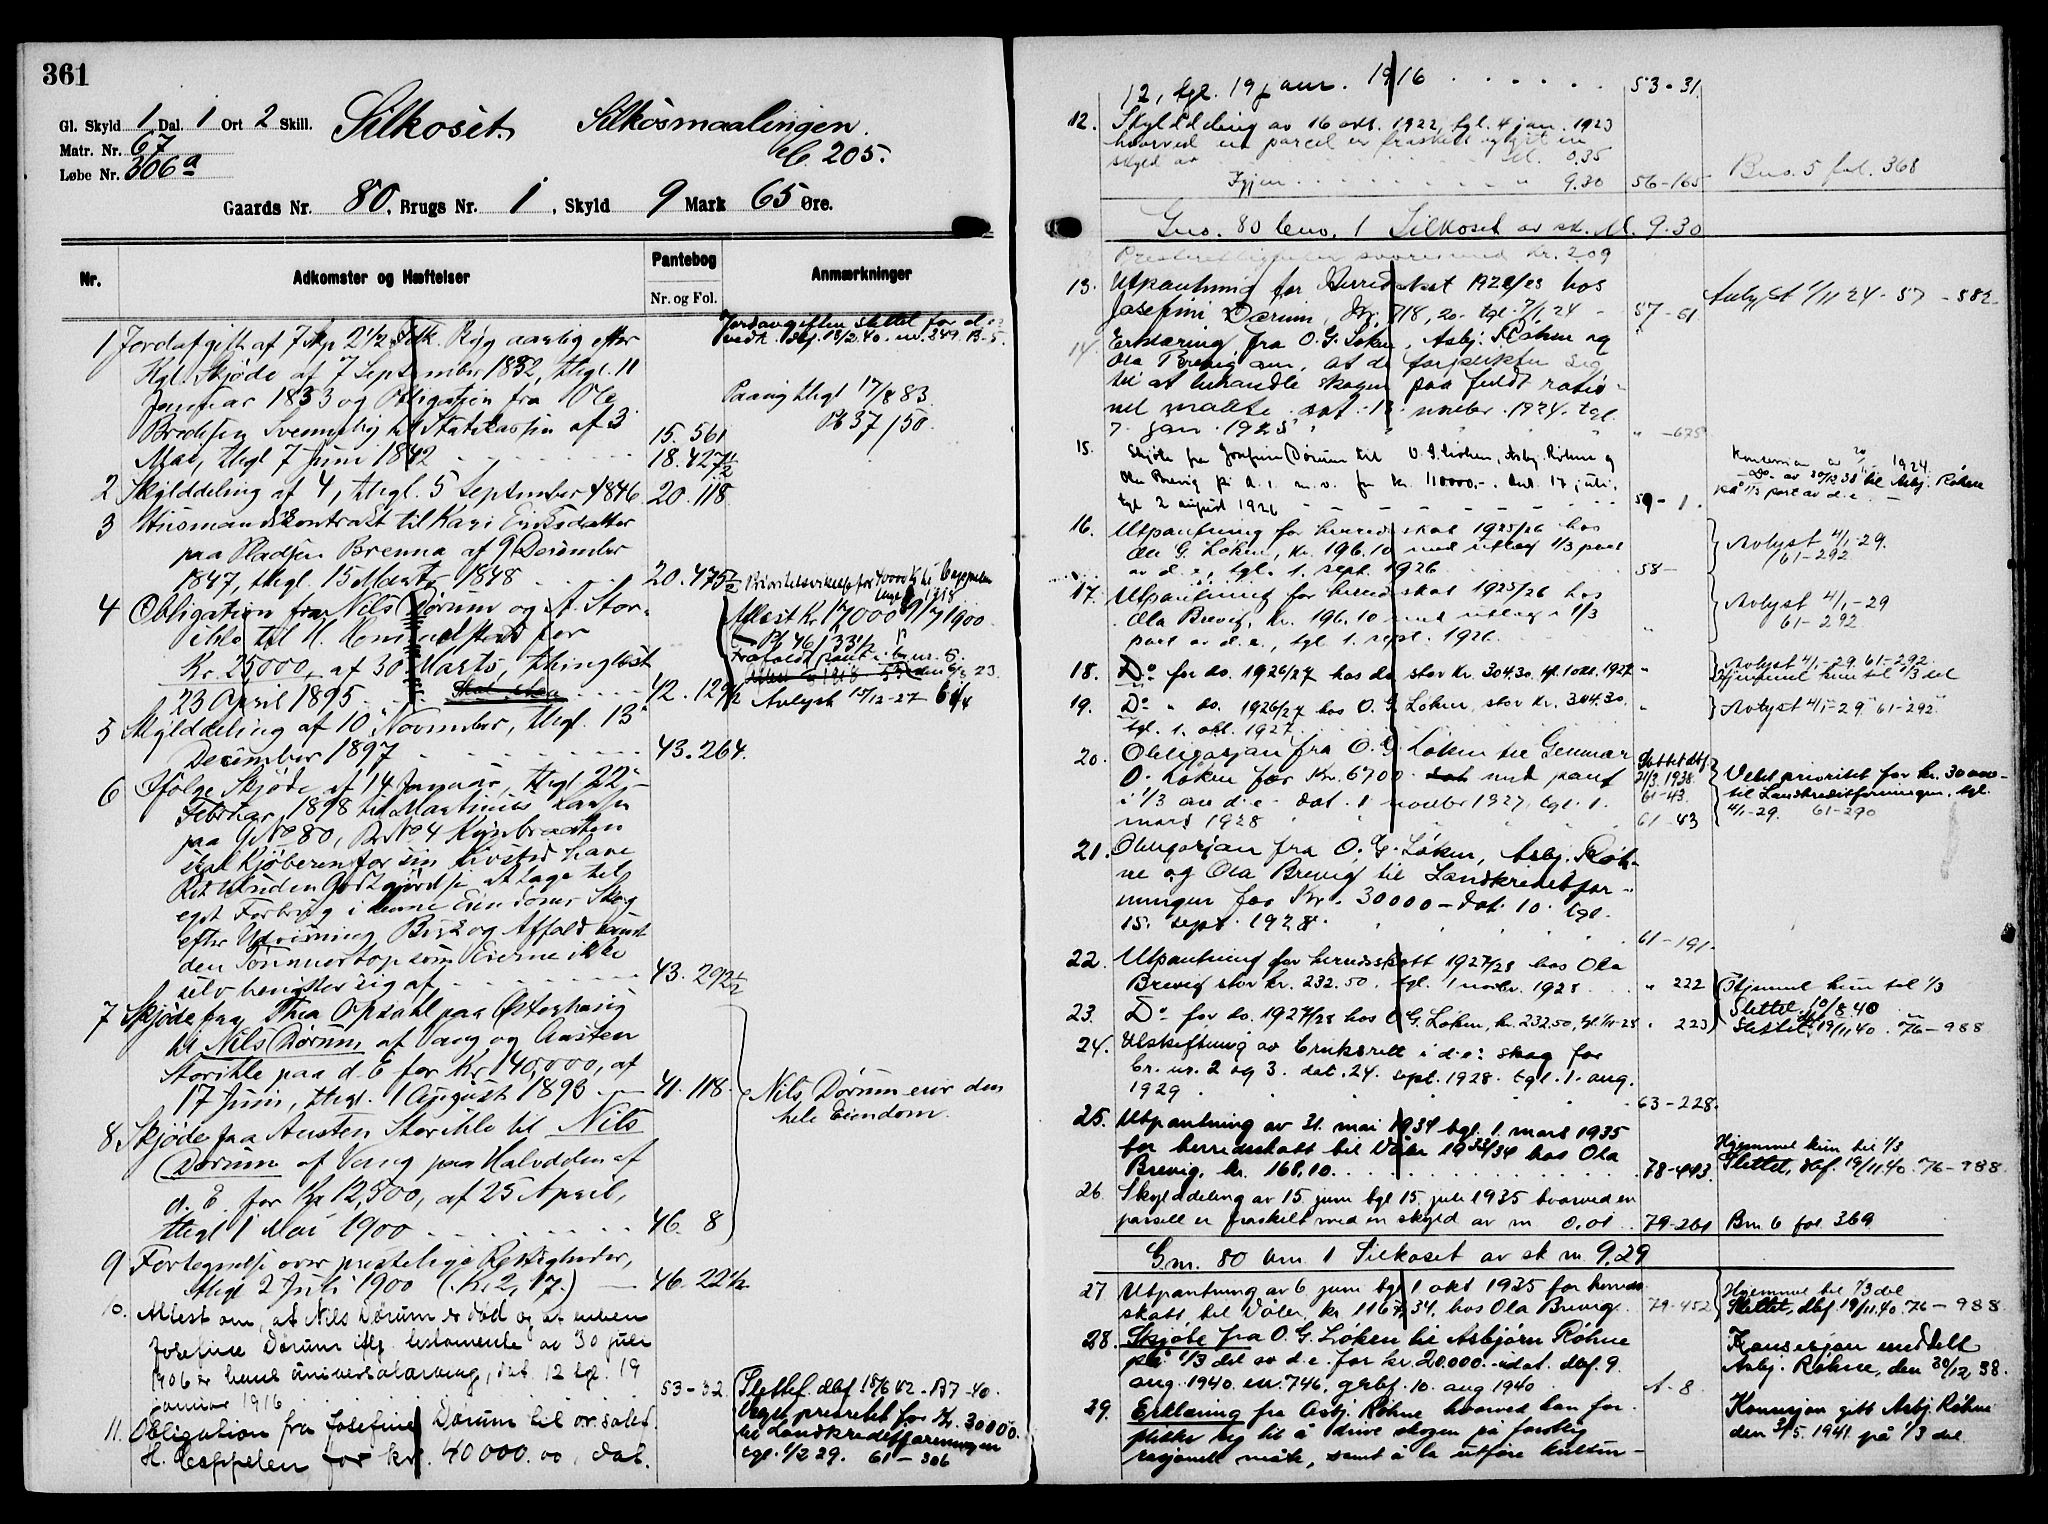 361
Gl. Skyld 1 Dal. 1 Ort 2 Skill.
Matr. Nr. 67
Løbe Nr. 306a
Silkoset. Silkosmaalingen.
C. 205.
Gaards Nr. 80, Brugs Nr. 1, Skyld 9 Mark 65 Øre.
Nr. Adkomster og Hæftelser Pantebog Anmærkninger
Nr. og Fol.
1 Jordafgift af 7 Skp 2 1/2 Fdk. Rug aarlig efter
Kgl. Skjøde af 7 September 1832, thgl. 11
Januar 1833 og Obligation fra Ole
Bredesen Svenneby til Statskassen af 3 15. 561
Mai, thgl 7 Juni 1842 18. 427 1/2
Jordavgiften slettet
Paany thlgt 17/8 83.
Pb 37/50.
2 Skylddeling af 4, thlgl. 5 September 1846 20. 118
3 Husmandskontrakt til Kari Eriksdatter
paa Pladsen Brenna af 9 December
1847, thgl. 15 Marts 1848 20. 475 1/2
4 Obligation fra Nils Dørum og A. Stor-
ihle til H.
Kr. 25000, af 30 Marts, thinglæst
23 April 1895 42. 129 1/2
Aflæst Kr 17,000 9/7 1900.
Avlyst 15/12-27
5 Skylddeling af 10 November, thgl. 13
December 1897 43. 264.
6 Ifølge Skjøde af 14 Januar, thgl 22
Februar 1898 til Martinus Larsen
paa GNo 80, BNo 4
skal Kjøberen for sin Livstid have
Ret til uden Godtgjørelse at tage til
eget Forbrug i denne Eiendoms Skog
efter Udvisning Bar og Affald samt
den Tømmertop som Eierne ikke
selv benytter sig af 43. 292 1/2
7 Skjøde fra Thea Opsahl paa Østerhaug
til Nils Dørum af Vang og Austen
Storihle paa d. E for Kr 140,000, af
17 Juni, thgl. 1 August 1893 41. 118.
Nils Dørum eier den
hele Eiendom.
8 Skjøde fra Austen Storihle til Nils
Dørum af Vang paa Halvdelen af
d. E. for Kr 12,500, af 25 April,
thgl 1 Mai 1900 46. 8
9 Fortegnelse over prestelige Rettigheder,
thgl 2 Juli 1900 (Kr. 2,17.) 46. 22 1/2
10. Attest om, at Nils Dørum er død og at enken
Josefine Dørum iflg. testamente av 30 juli
1906 er hans universalarving, dat. 12 tgl. 19
januar 1916 53-32
11. Obligation fra Josefine Dørum til or.sakf.
H. Cappelen for kr. 40000.00, dat.
Slettet dbf 18/6 42 - B7-40.
Veget prioritet for Kr. 30000.
til Landkreditforeningen
tgl. 1/2 29. 61-306
12, tgl. 19 jan. 1916 53-31.
12. Skylddeling av 16 okt. 1922, tgl. 4 jan. 1923
hvorved en parcel er fraskilt utgjort en
skyld av M. 0.35
Igjen 9.30 56-165
Bno. 5 fol. 368
Gno. 80 bno. 1 Silkoset av sk. M. 9.30
Presterettigheter svares med kr. 2,09
13. Utpantning for Herredskat 1922/23 hos
Josefine Dørum, Kr. 718,20. tgl. 7/1 24 57-61
Avlyst 1/11 24 - 57 - 582
14. Erklæring fra O. G. Løken, Asbj. Røhne og
Ola Brevig om, at de forplikter sig
til at behandle skogen paa fuldt ratio-
nel maate. dat. 13 novbr. 1924. tgl.
7. jan. 1925 " -675
15. Skjøte fra Josefine Dørum til O. G. Løken, Asbj. Røhne og
Ola Brevig på d. e. m. v. for kr. 110000,-. dat. 17 juli,
tgl 2 august 1926 59-1.
på 1/3 part av d. e.
16. Utpantning for herredsskat 1925/26 hos
Ole G. Løken, kr. 196.10 med utlæg 1/3 part
av d. e., tgl. 1. sept. 1926 58-
Avlyst 4/1-29.
61-292
17. Utpantning for herredsskat 1925/26 hos
Ola Brevig, kr. 196.10 med utlæg i 1/3
part av d. e., tgl. 1. sept. 1926 "
Avlyst 4/1-29
61-292
18. Do for do. 1926/27 hos do stor kr. 304.30. tgl. 1 okt. 1927 "
Avlyst 4/1-29. 61-292.
Hjemmel kun til 1/3 del
19. Do " do. 1926/27 hos O. G. Løken, stor kr. 304.30.
tgl. 1. okt. 1927 "
Avlyst 4/1-29 61-292
20. Obligasjon fra O. G. Løken til Gunnar
O. Løken for kr. 6700 med pant
i 1/3 av d. e. dat. 1 novbr 1927, tgl. 1.
mars 1928 61-43
Slettet dbf
21/3. 1938.
61-43.
Veket prioritet for kr. 30000
til Landkreditforeningen, tgl.
4/1-29. 61-290
21. Obligasjon fra O. G. Løken, Asbj. Røh-
ne og Ola Brevig til Landkreditfor-
eningen for Kr. 30000 - dat. 10. tgl.
15. sept. 1928. 61-191.
22. Utpantning for herredsskatt 1927/28 hos Ola
Brevig stor kr. 232.50. tgl. 1 novbr. 1928 " 222
Hjemmel kun til 1/3
Slettet 10/8 40
23. Do for do. 1927/28 hos O. G. Løken, kr. 232.50, tgl. 1/11-28 " 223
Slettet 19/11.40. 76-988
24. Utskiftning av bruksrett i d. e.s skog for
br. nr. 2 og 3. dat. 24. sept. 1928. tgl. 1. aug.
1929 63-228.
25. Utpantning av 31. mai 1934 tgl. 1. mars 1935
for herredsskatt til Våler 1933/34 hos Ola
Brevig, kr. 168,10 78-443.
Hjemmel kun til 1/3
Slettet, dbf. 19/11.40. 76-988
26. Skylddeling av 15. juni tgl 15. juli 1935 hvorved en
parsell er fraskilt med en skyld av m 0,01 79-261
Bnr 6 fol. 369
Gnr. 80 bnr. 1 Silkoset av sk m. 9,29
27 Utpantning av 6 juni tgl 1 okt 1935 for herreds-
skatt til Våler, kr 116,34, hos Ola Brevig. 79-452
Hjemmel til 1/3 del
Slettet, dbf. 19/11.40. 76-988
28. Skjøte fra O. G. Løken til Asbjørn Røhne
på 1/3 del av d. e. for kr. 20.000.- dat. dbf. 9.
aug. 1940. nr. 746. grbf. 10. aug 1940 A-8.
Konsesjon meddelt
Asbj. Røhne, den 30/12 38.
29. Erklæring fra Asbj. Røhne hvorved han for-
plikter seg til å drive skogen på forstlig
rasjonell måte, samt å la utføre kultur-
Konsesjon gitt Asbj. Røhne
den 31/5. 1941 på 1/3 del